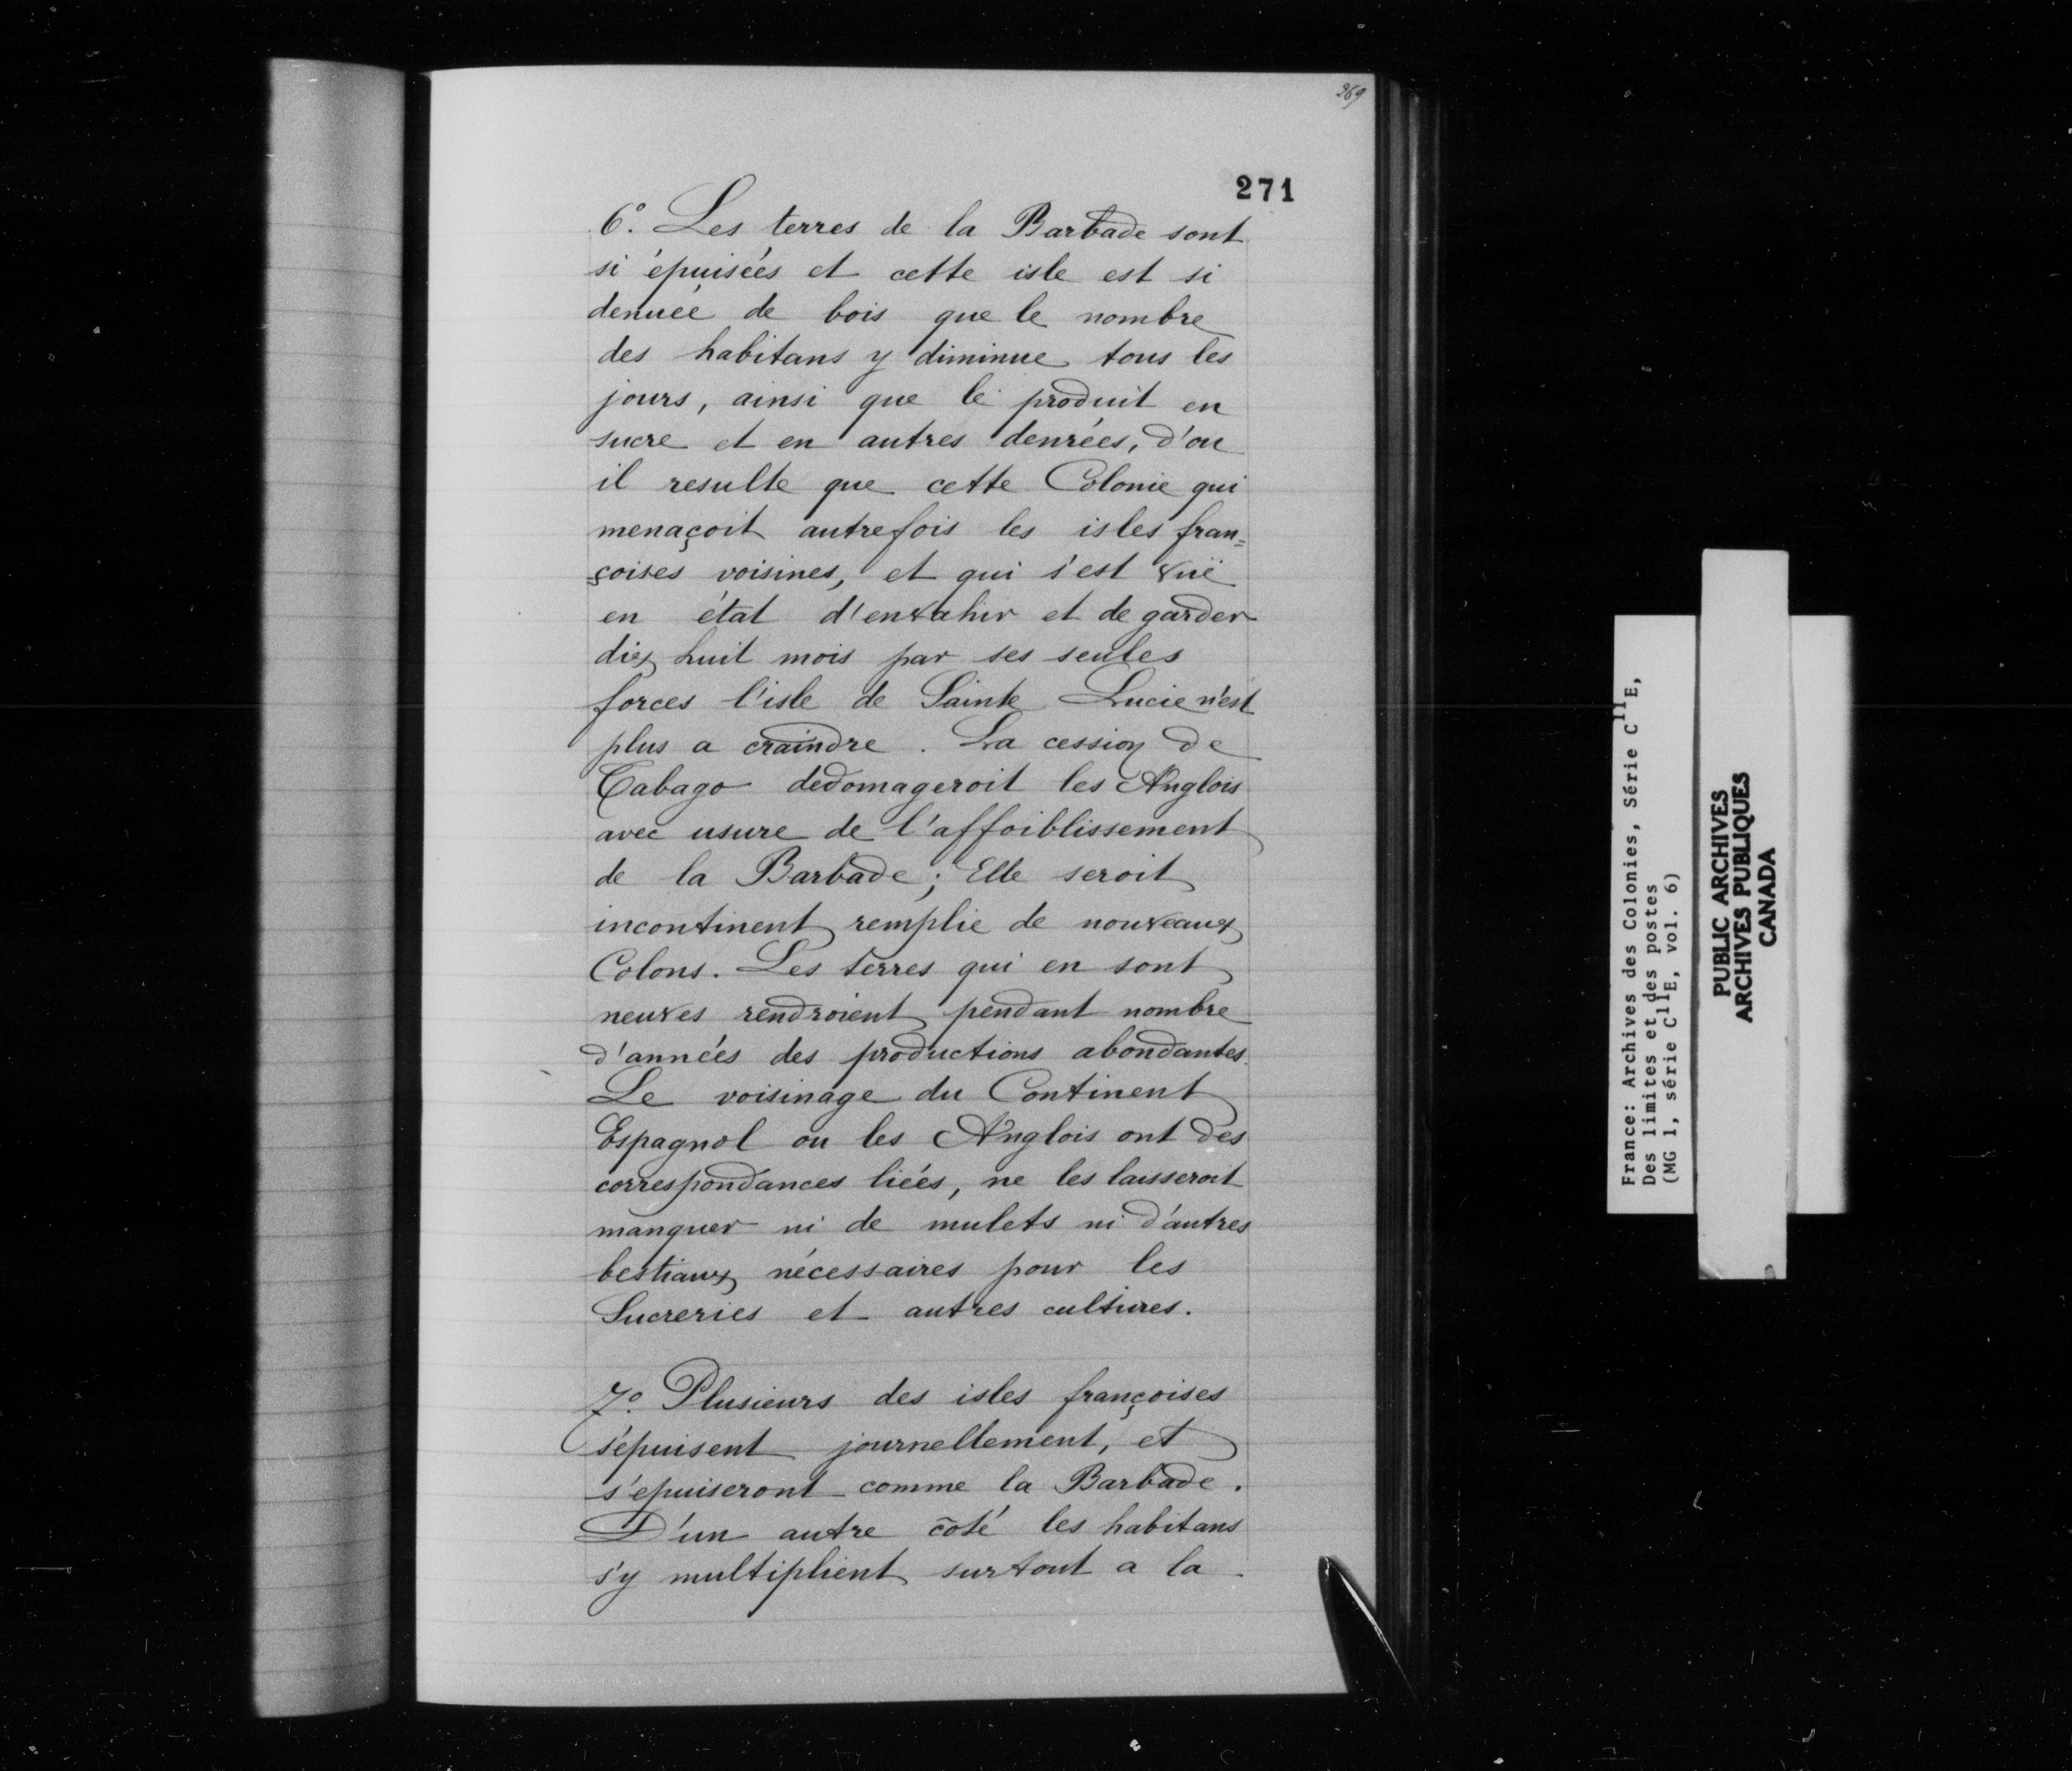 269
271
6º. Les terres de la Barbade sont
si épuisées et cette isle est si
denuée de bois que le nombre
des habitans y diminue tous les
jours, ainsi que le produit en
sucre et en autres denrées, d'ou
il resulte que cette Colonie qui
menaçoit autrefois les isles fran=
=çoises voisines, et qui s'est vuë
en état d'envahir et de garder
dix huit mois par ses seules
forces l'isle de Sainte Lucie n'est
plus a craindre. La cession de
Tabago dedomageroit les Anglois
avec usure de l'affoiblissement
de la Barbade; Elle seroit
incontinent remplie de nouveaux
Colons. Les terres qui en sont
neuves rendroient pendant nombre
d'années des productions abondantes.
Le voisinage du Continent
Espagnol ou les Anglois ont des
correspondances liées, ne les laisseroit
manquer ni de mulets ni d'autres
bestiaux nécessaires pour les
Sucreries et autres cultures.
7º. Plusieurs des isles françoises
s'épuisent journellement, et
s'epuiseront comme la Barbade.
D'un autre coté les habitans
s'y multiplient surtout a la
France: Archives des Colonies, Série C11E,
Des limites et des postes
(MG 1, série C11E, vol. 6)
PUBLIC ARCHIVES
ARCHIVES PUBLIQUES
CANADA